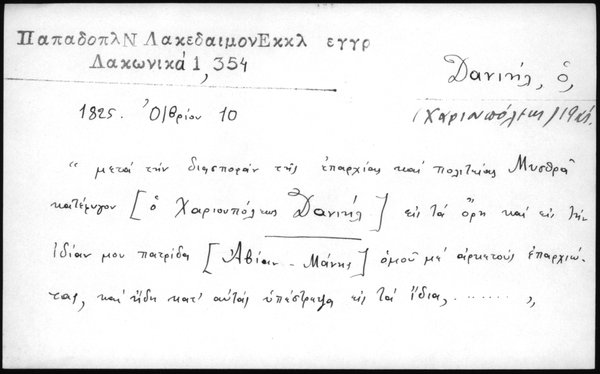 ΠαπαδοπλΝ ΛακεδαιμονΕκκλ εγγρ
Λακωνικά 1, 354
Δανιήλ, ὁ,
1825. Ὀ/βρίου 10
(Χαριουπόλεως)
"μετά τήν διασποράν τῆς ἐπαρχίας καί πολιτείας Μυσθρᾶ
κατέφυγον [ὁ Χαριουπόλεως Δανιήλ] εἰς τά ὄρη καί εἰς τήν
ἰδίαν μου πατρίδα [Ἀβίαν - Μάνης] ὁμοῦ μέ ἀρκετούς ἐπαρχιώ-
τας, καί ἤδη κατ' αὐτάς ὑπέστρεψα εἰς τά ἴδια, ....... "